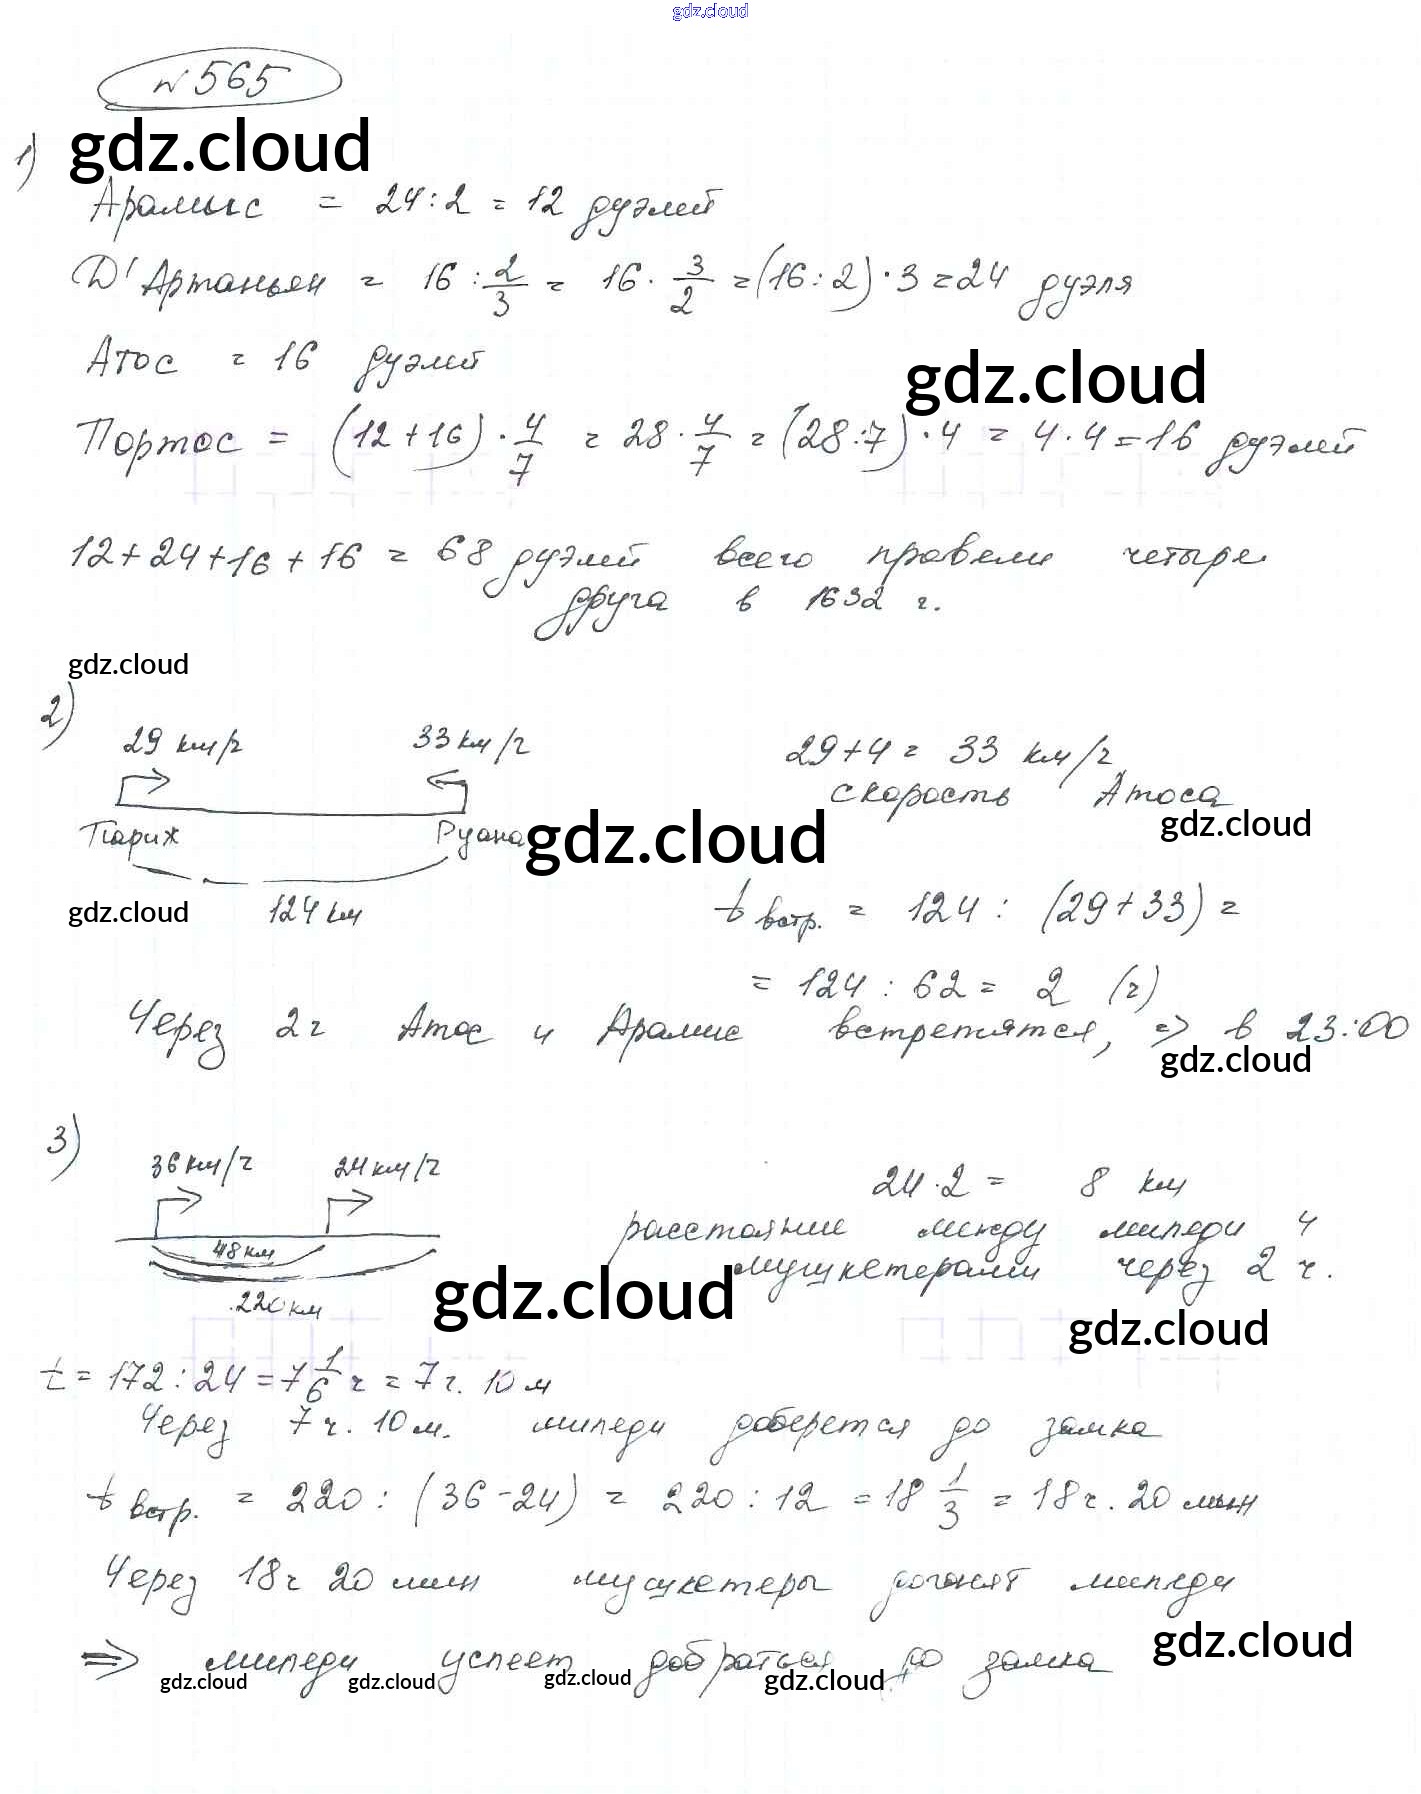 gdz.cloud
№565
gdz.cloud
1)
Арамис = 24:2 = 12 дуэлей
Д'Артаньян = 16 : 2/3 = 16 · 3/2 = (16:2)·3 = 24 дуэля
Атос = 16 дуэлей
gdz.cloud
Портос = (12+16) · 4/7 = 28 · 4/7 = (28:7)·4 = 4·4 = 16 дуэлей
12+24+16+16 = 68 дуэлей всего провели четыре
друга в 1632 г.
gdz.cloud
2)
29 км/ч 33 км/ч 29+4 = 33 км/ч
скорость Атоса
Париж Руана gdz.cloud gdz.cloud
gdz.cloud 124 км t встр. = 124 : (29+33) =
= 124 : 62 = 2 (ч)
Через 2ч Атос и Арамис встретятся, => в 23:00
gdz.cloud
3)
36 км/ч 24 км/ч 24·2 = 8 км
расстояние между миледи и
48 км мушкетерами через 2 ч.
220 км gdz.cloud gdz.cloud
t = 172:24 = 7 1/6 ч = 7 ч. 10 м
Через 7 ч. 10 м. миледи доберется до замка
t встр. = 220 : (36-24) = 220 : 12 = 18 1/3 = 18 ч. 20 мин
Через 18ч 20 мин мушкетеры догонят миледи
gdz.cloud
=> миледи успеет добраться до замка
gdz.cloud gdz.cloud gdz.cloud gdz.cloud